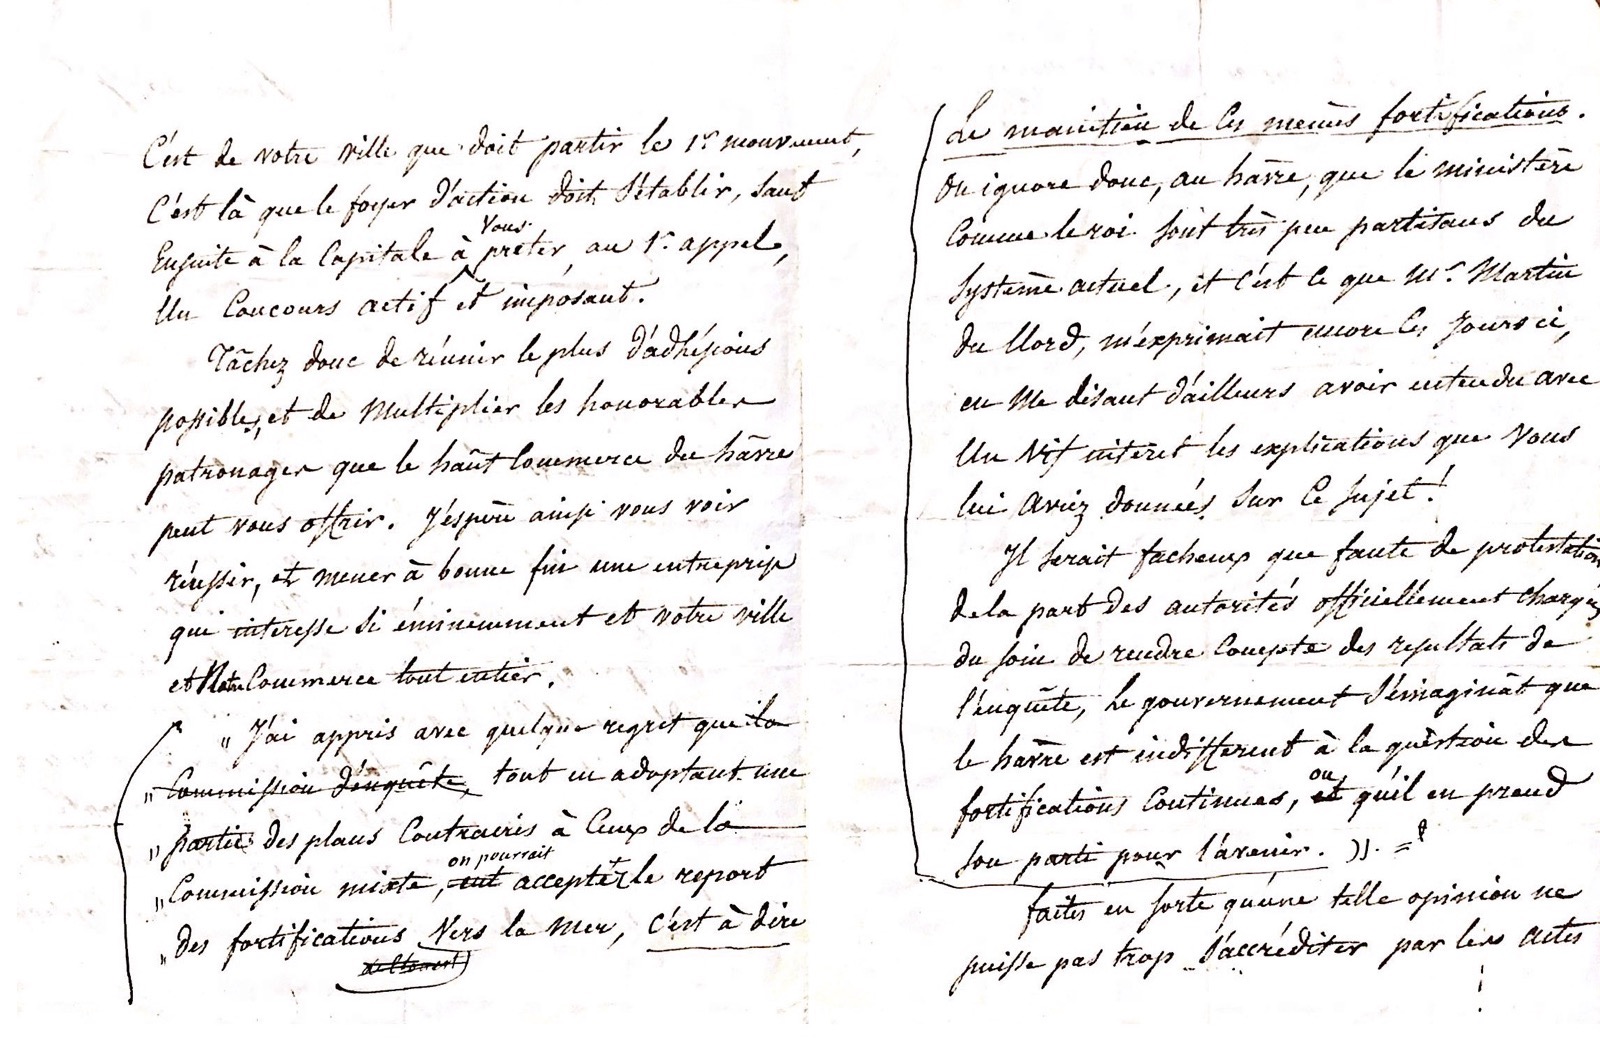 C'est de votre ville que doit partir le 1er mouvement,
C'est là que le foyer d'action doit s'établir, sauf
Ensuite à la Capitale à vous prêter, au 1er appel,
Un Concours actif et imposant.
Tâchez donc de réunir le plus d'adhésions
possibles, et de Multiplier les honorables
patronages que le haut Commerce du hâvre
peut vous offrir. J'espère ainsi vous voir
réussir, et mener à bonne fin une entreprise
qui interesse si éminemment et votre ville
et Notre Commerce tout entier.
" J'ai appris avec quelque regret que la
" Commission d'enquête, tout en adoptant une
" partie des plans Contraires à Ceux de la
" Commission mixte, on pourrait eut accepter le report
" des fortifications Vers la Mer, c'est à dire
Le maintien de Ces mêmes fortifications.
On ignore donc, au hâvre, que le ministère
Comme le roi sont très peu partisans du
Système actuel, et c'est ce que Mr. Martin
du Nord, m'exprimait encore Ces Jours ci,
en Me disant d'ailleurs avoir entendu avec
Un Vif intéret les explications que Vous
lui Aviez données sur Ce Sujet !
Il serait facheux que faute de protestation
de la part des autorités officiellement chargées
du soin de rendre Compte des resultats de
l'enquête, Le gouvernement s'imaginât que
le hâvre est indifférent à la question des
fortifications Continues, ou et qu'il en prend
son parti pour l'avenir. )).
faites en sorte qu'une telle opinion ne
puisse pas trop s'accréditer par les actes